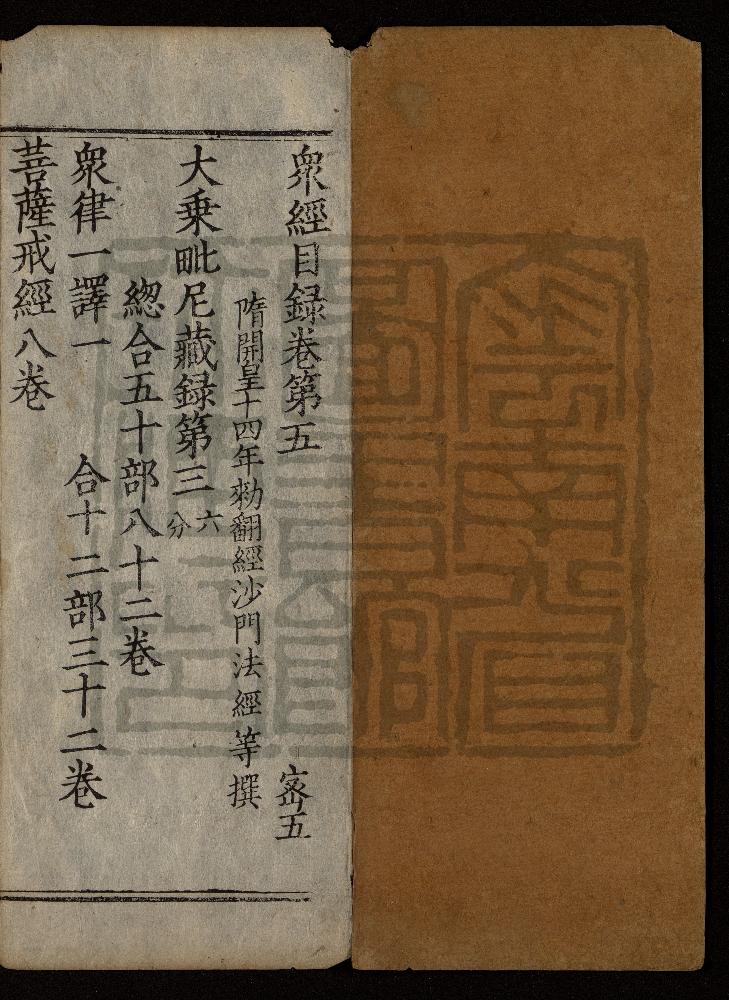 衆經目録卷第五 宻五
隋開皇十四年勑翻經沙門法經等撰
大乗毗尼藏録第三 六分
緫合五十部八十二卷
衆律一譯一 合十二部三十二卷
菩薩戒經八卷